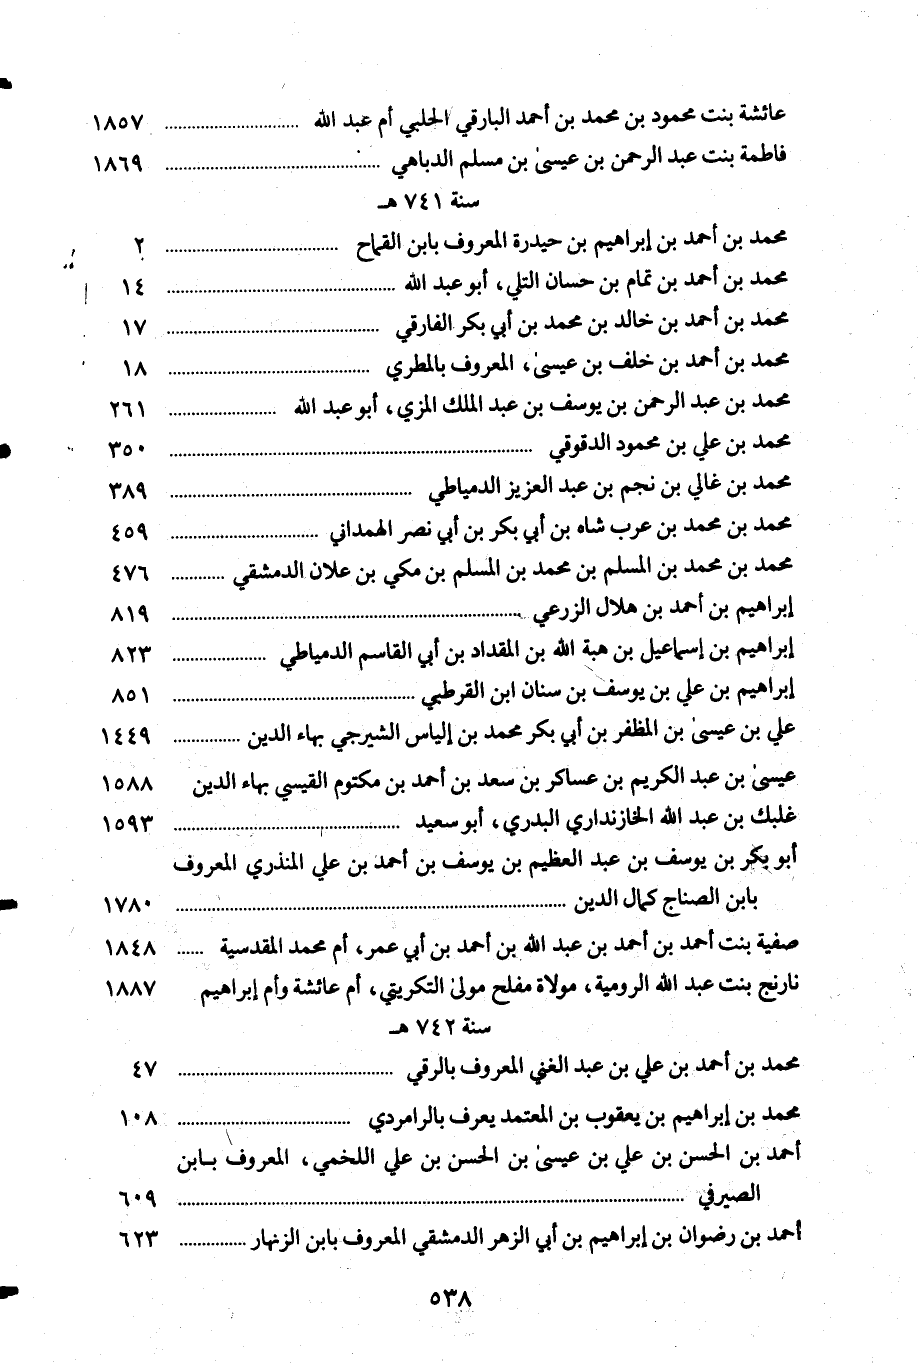 عائشة بنت محمود بن محمد بن أحمد البارقي الحلبي أم عبد الله ............................. ١٨٥٧
فاطمة بنت عبد الرحمن بن عيسىٰ بن مسلم الدباهي ............................................... ١٨٦٩
سنة ٧٤١ هـ
محمد بن أحمد بن إبراهيم بن حيدرة المعروف بابن القماح ...................................... ٢
محمد بن أحمد بن تمام بن حسان التلي، أبو عبد الله .................................................. ١٤
محمد بن أحمد بن خالد بن محمد بن أبي بكر الفارقي ............................................... ١٧
محمد بن أحمد بن خلف بن عيسىٰ، المعروف بالمطري ............................................ ١٨
محمد بن عبد الرحمن بن يوسف بن عبد الملك المزي، أبو عبد الله ........................ ٢٦١
محمد بن علي بن محمود الدقوقي ............................................................................... ٣٥٠
محمد بن غالي بن نجم بن عبد العزيز الدمياطي ..................................................... ٣٨٩
محمد بن محمد بن عرب شاه بن أبي بكر بن أبي نصر الهمداني ................................ ٤٥٩
محمد بن محمد بن المسلم بن محمد بن المسلم بن مكي بن علان الدمشقي ............ ٤٧٦
إبراهيم بن أحمد بن هلال الزرعي ............................................................................. ٨١٩
إبراهيم بن إسماعيل بن هبة الله بن المقداد بن أبي القاسم الدمياطي .................... ٨٢٣
إبراهيم بن علي بن يوسف بن سنان ابن القرطبي .................................................... ٨٥١
علي بن عيسىٰ بن المظفر بن أبي بكر محمد بن إلياس الشيرجي بهاء الدين .............. ١٤٤٩
عيسىٰ بن عبد الكريم بن عساكر بن سعد بن أحمد بن مكتوم القيسي بهاء الدين ١٥٨٨
غلبك بن عبد الله الخازنداري البدري، أبو سعيد ................................................. ١٥٩٣
أبو بكر بن يوسف بن عبد العظيم بن يوسف بن أحمد بن علي المنذري المعروف
بابن الصناج كمال الدين ..................................................................................... ١٧٨٠
صفية بنت أحمد بن أحمد بن عبد الله بن أحمد بن أبي عمر، أم محمد المقدسية ...... ١٨٤٨
نارنج بنت عبد الله الرومية، مولاة مفلح مولىٰ التكريتي، أم عائشة وأم إبراهيم ١٨٨٧
سنة ٧٤٢ هـ
محمد بن أحمد بن علي بن عبد الغني المعروف بالرقي ............................................... ٤٧
محمد بن إبراهيم بن يعقوب بن المعتمد يعرف بالرامردي ...................................... ١٠٨
أحمد بن الحسن بن علي بن عيسىٰ بن الحسن بن علي اللخمي، المعروف بـابن
الصيرفي ............................................................................................................... ٦٠٩
أحمد بن رضوان بن إبراهيم بن أبي الزهر الدمشقي المعروف بابن الزنهار ............... ٦٢٣
٥٣٨